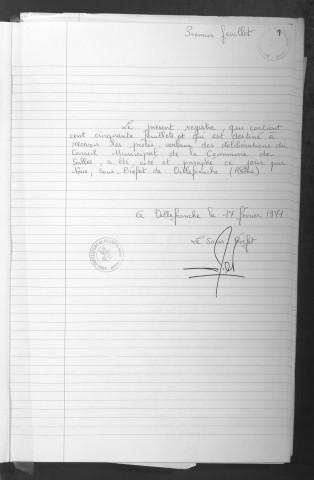 Premier feuillet
1
Le présent registre, qui contient
cent cinquante feuillets et qui est destiné à
recevoir les procès verbaux des délibérations du
Conseil Municipal de la Commune de
Salles, a été coté et paraphé ce jour par
Nous, Sous-Préfet de Villefranche (Rhône).
A Villefranche le 17 février 1971
Le Sous Préfet